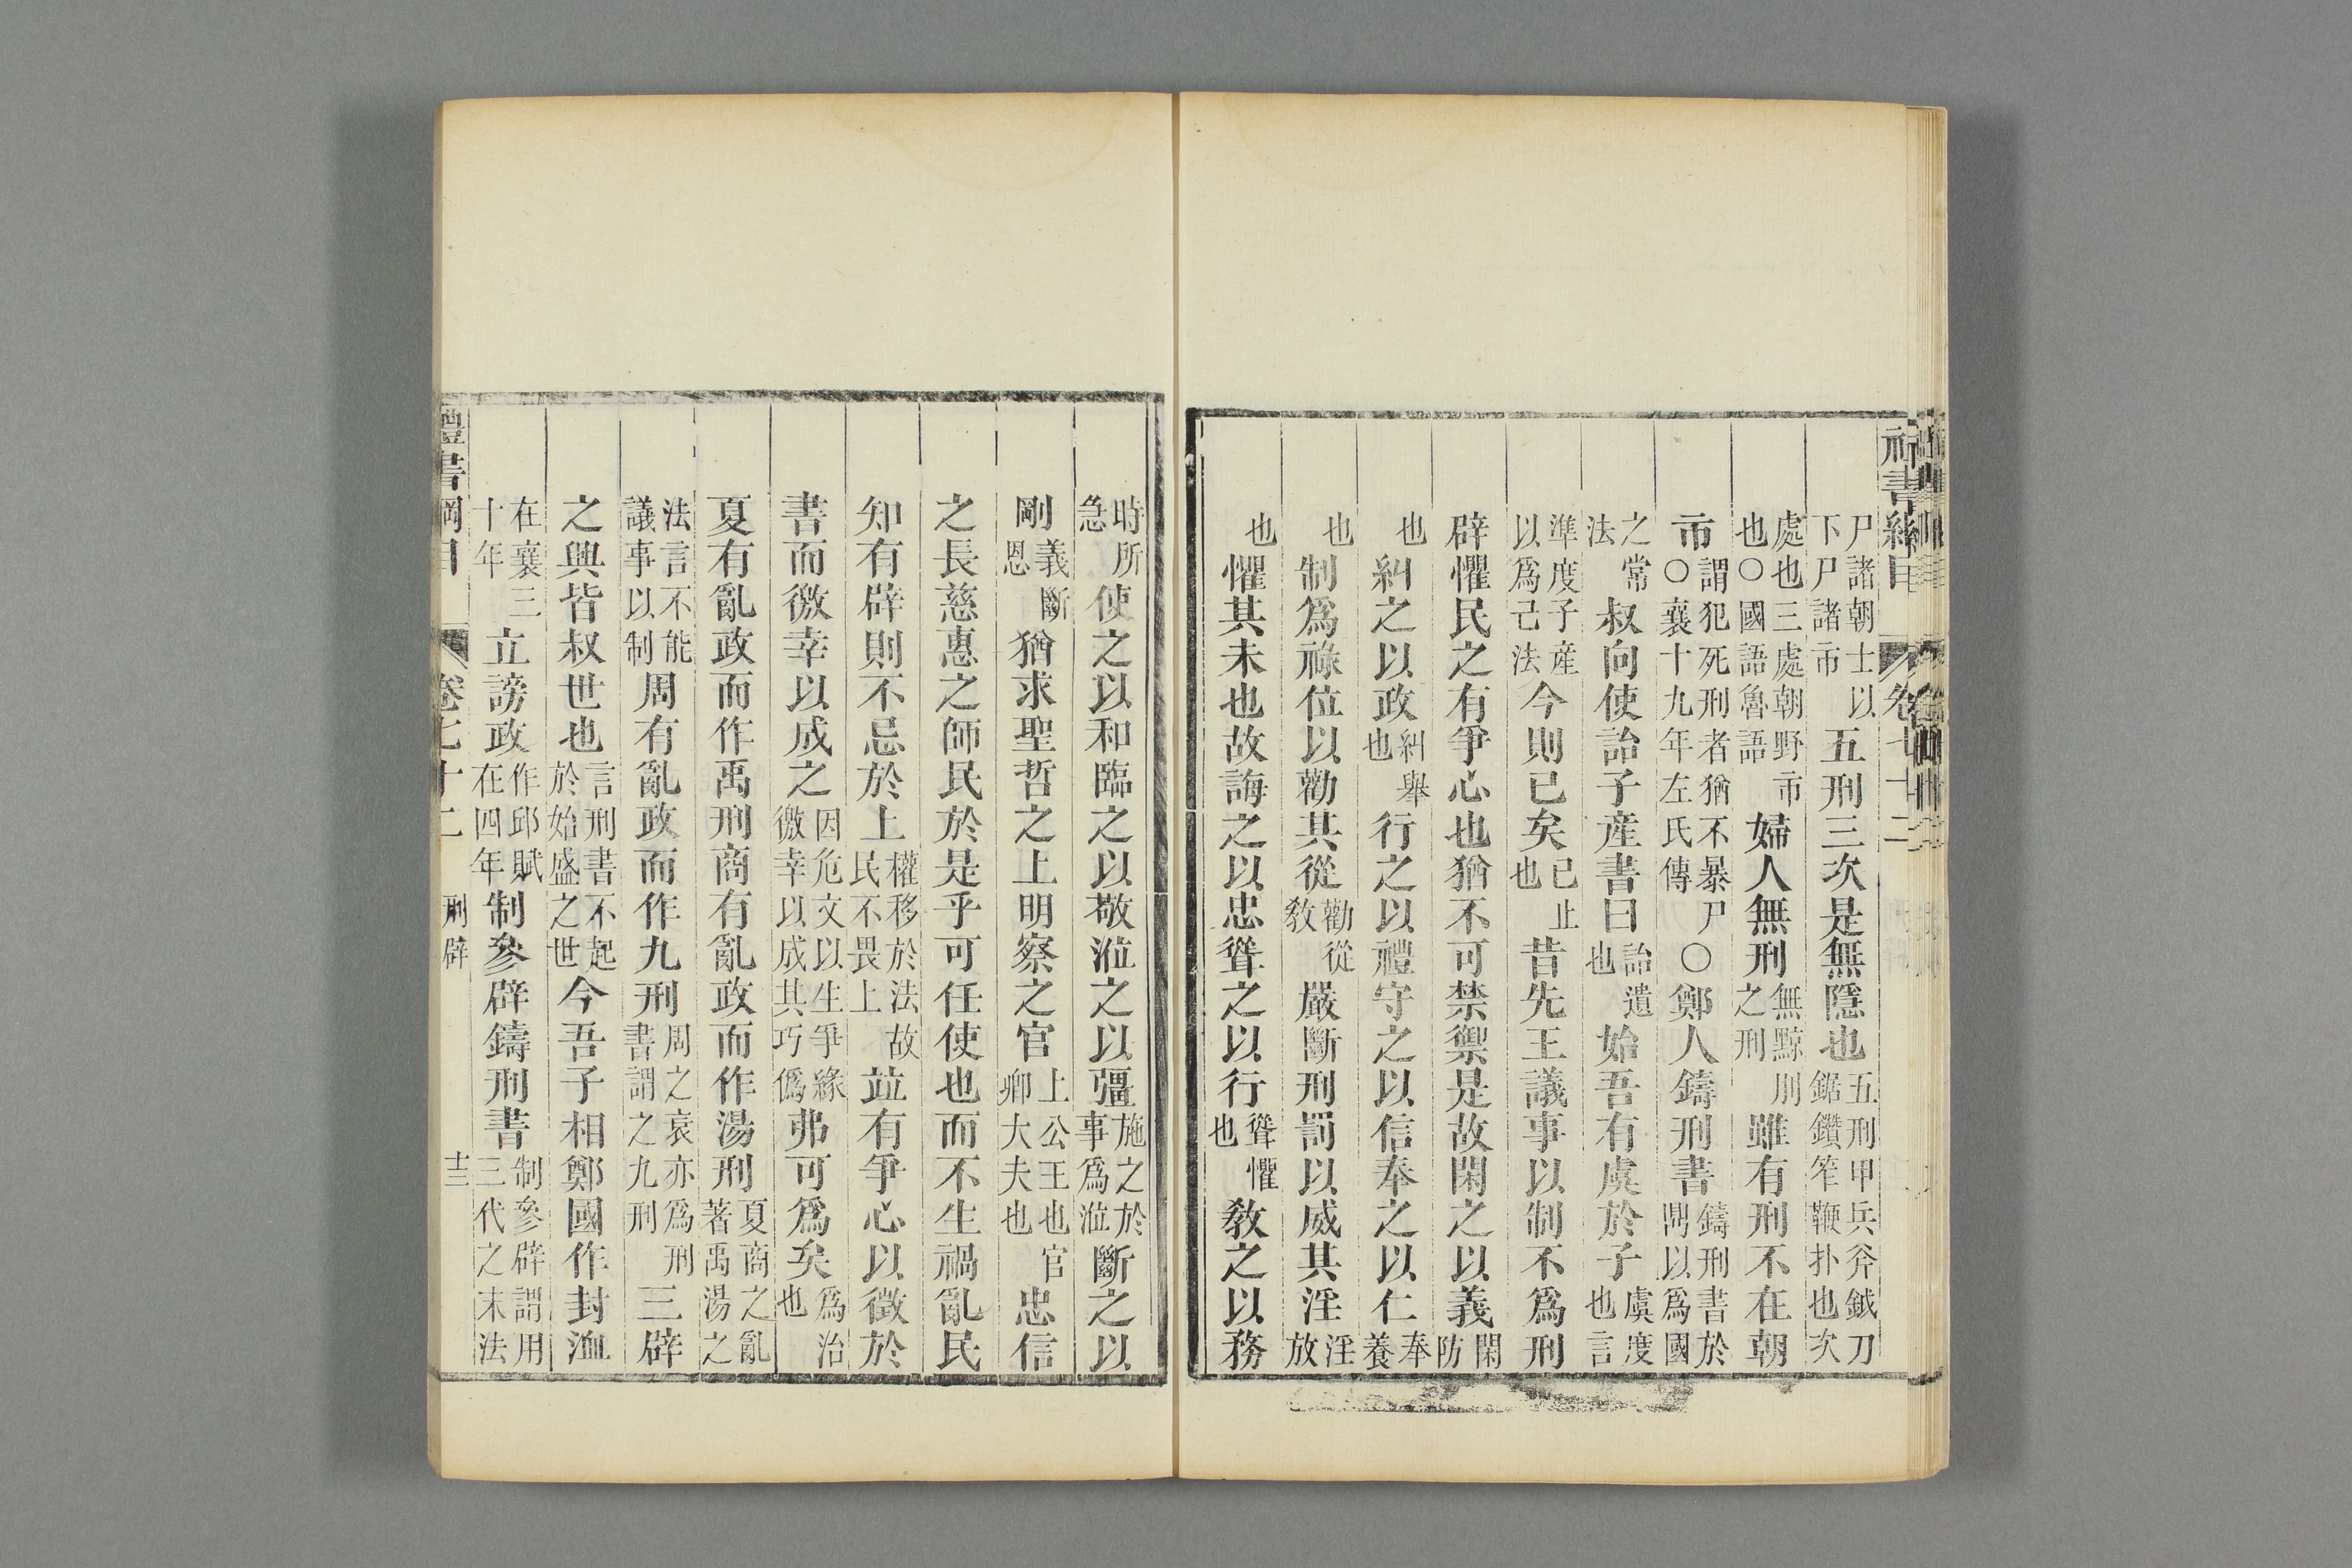 尸諸朝士以下尸諸市五刑三次是無隱也五刑甲兵斧鉞刀鋸鑽笮鞭扑也次
處也三處朝野市也○國語魯語婦人無刑無黥刖之刑雖有刑不在朝
市謂犯死刑者猶不暴尸○襄十九年左氏傳○鄭人鑄刑書鑄刑書於鼎以爲國
之常法叔向使詒子產書曰詒遺也始吾有虞於子虞度也言
準度子產以爲己法今則已矣已止也昔先王議事以制不爲刑
辟懼民之有爭心也猶不可禁禦是故閑之以義閑防
也糾之以政糾舉也行之以禮守之以信奉之以仁奉養
也制爲祿位以勸其從勸從教嚴斷刑罰以威其淫淫放
也懼其未也故誨之以忠聳之以行聳懼也敎之以務
時所急使之以和臨之以敬涖之以彊施之於事爲涖斷之以
剛義斷恩猶求聖哲之上明察之官上公王也官卿大夫也忠信
之長慈惠之師民於是乎可任使也而不生禍亂民
知有辟則不忌於上權移於法故民不畏上竝有爭心以徵於
書而徼幸以成之因危文以生爭緣徼幸以成其巧僞弗可爲矣爲治也
夏有亂政而作禹刑商有亂政而作湯刑夏商之亂著禹湯之
法言不能議事以制周有亂政而作九刑周之衰亦爲刑書謂之九刑三辟
之興皆叔世也言刑書不起於始盛之世今吾子相鄭國作封洫
在襄三十年立謗政作邱賦在四年制參辟鑄刑書制參辟謂用三代之末法
禮書綱目 卷七十二 刑辟 十三